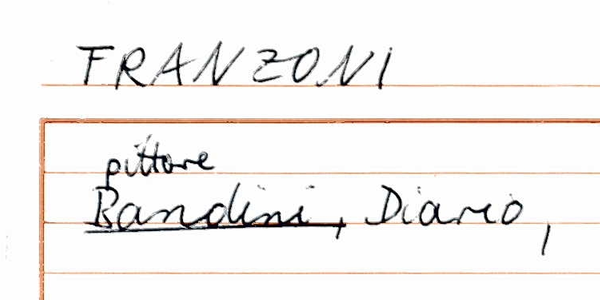 FRANZONI
pittore
Bandini, Diario,